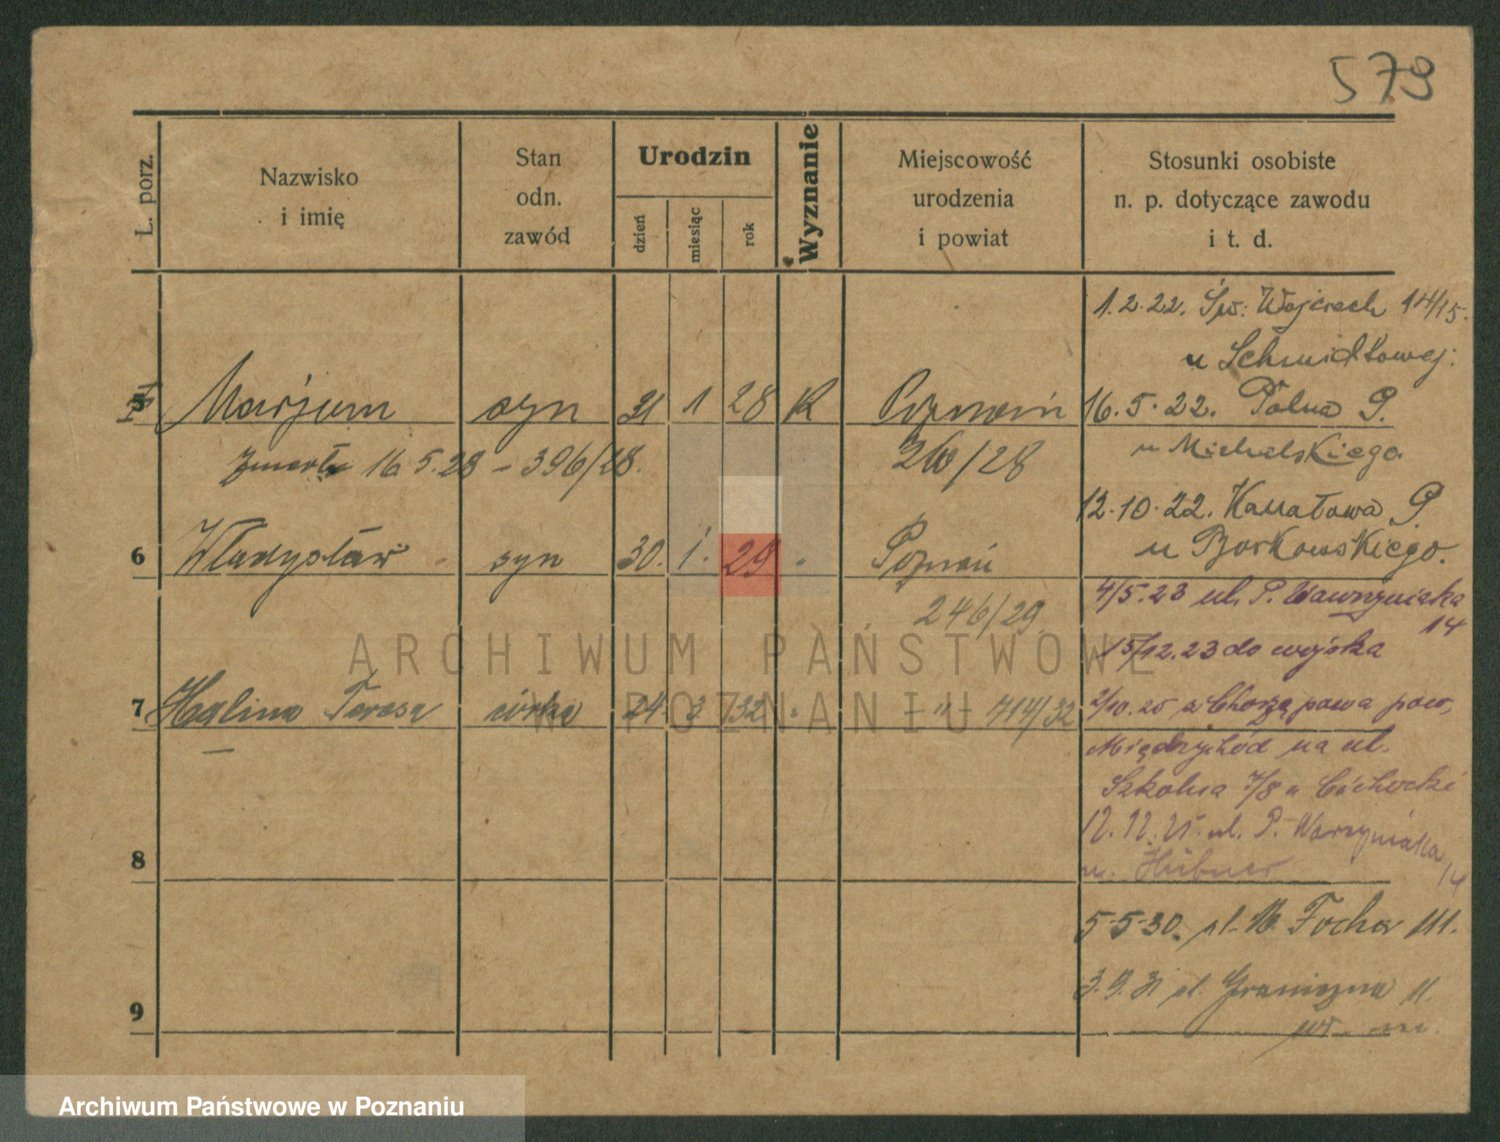 579
L. porz.
Nazwisko i imię
Stan odn. zawód
Urodzin
dzień
miesiąc
rok
Wyznanie
Miejscowość urodzenia i powiat
Stosunki osobiste n. p. dotyczące zawodu i t. d.
1.2.22. Św. Wojciech 14/15.
u Schmidtowej.
5 Marjan syn 21 1 28 R Poznań
16.5.22. Polna P.
u Michalskiego
zmarł 16 5.28 – 396/28.
260/28
12.10.22. Kanałowa P.
u Borkowskiego.
6 Władysław syn 30. 1. 29 " Poznań
246/29
4/5.23 ul. P. Wawrzyniaka 14
15/12.23 do wojska
7 Halina Teresa córka 24 3 32 " – " – 714/32
2/10.25 z Chorzępowa pow.
Międzychód na ul.
Szkolna 7/8 u Cichocki
12.12.25. ul. P. Wawrzyniaka 14
u. Hübner
8
5.5.30. ul. M. Focha 111.
3.9.31 ul. Graniczna 11
9
ARCHIWUM PAŃSTWOWE
W POZNANIU
Archiwum Państwowe w Poznaniu